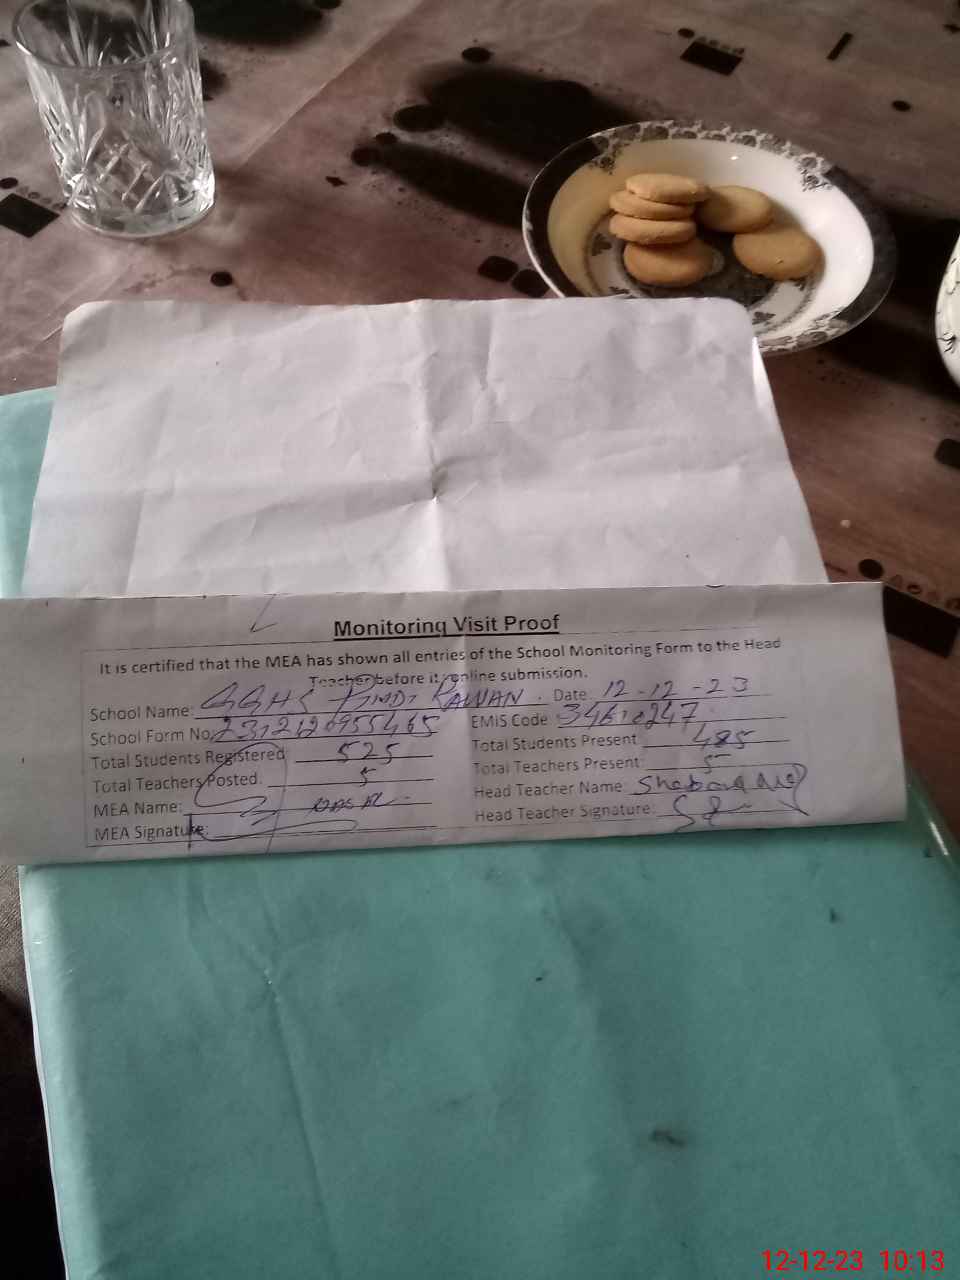 Monitoring Visit Proof
It is certified that the MEA has shown all entries of the School Monitoring Form to the Head
Teacher before it online submission.
School Name: GGHS PINDI RAWAN . Date: 12-12-23
School Form No. EMIS Code
Total Students Registered 525 Total Students Present 485
Total Teachers Posted: 5 Total Teachers Present: 5
MEA Name: Head Teacher Name:
MEA Signature: Head Teacher Signature:
12-12-23 10:13